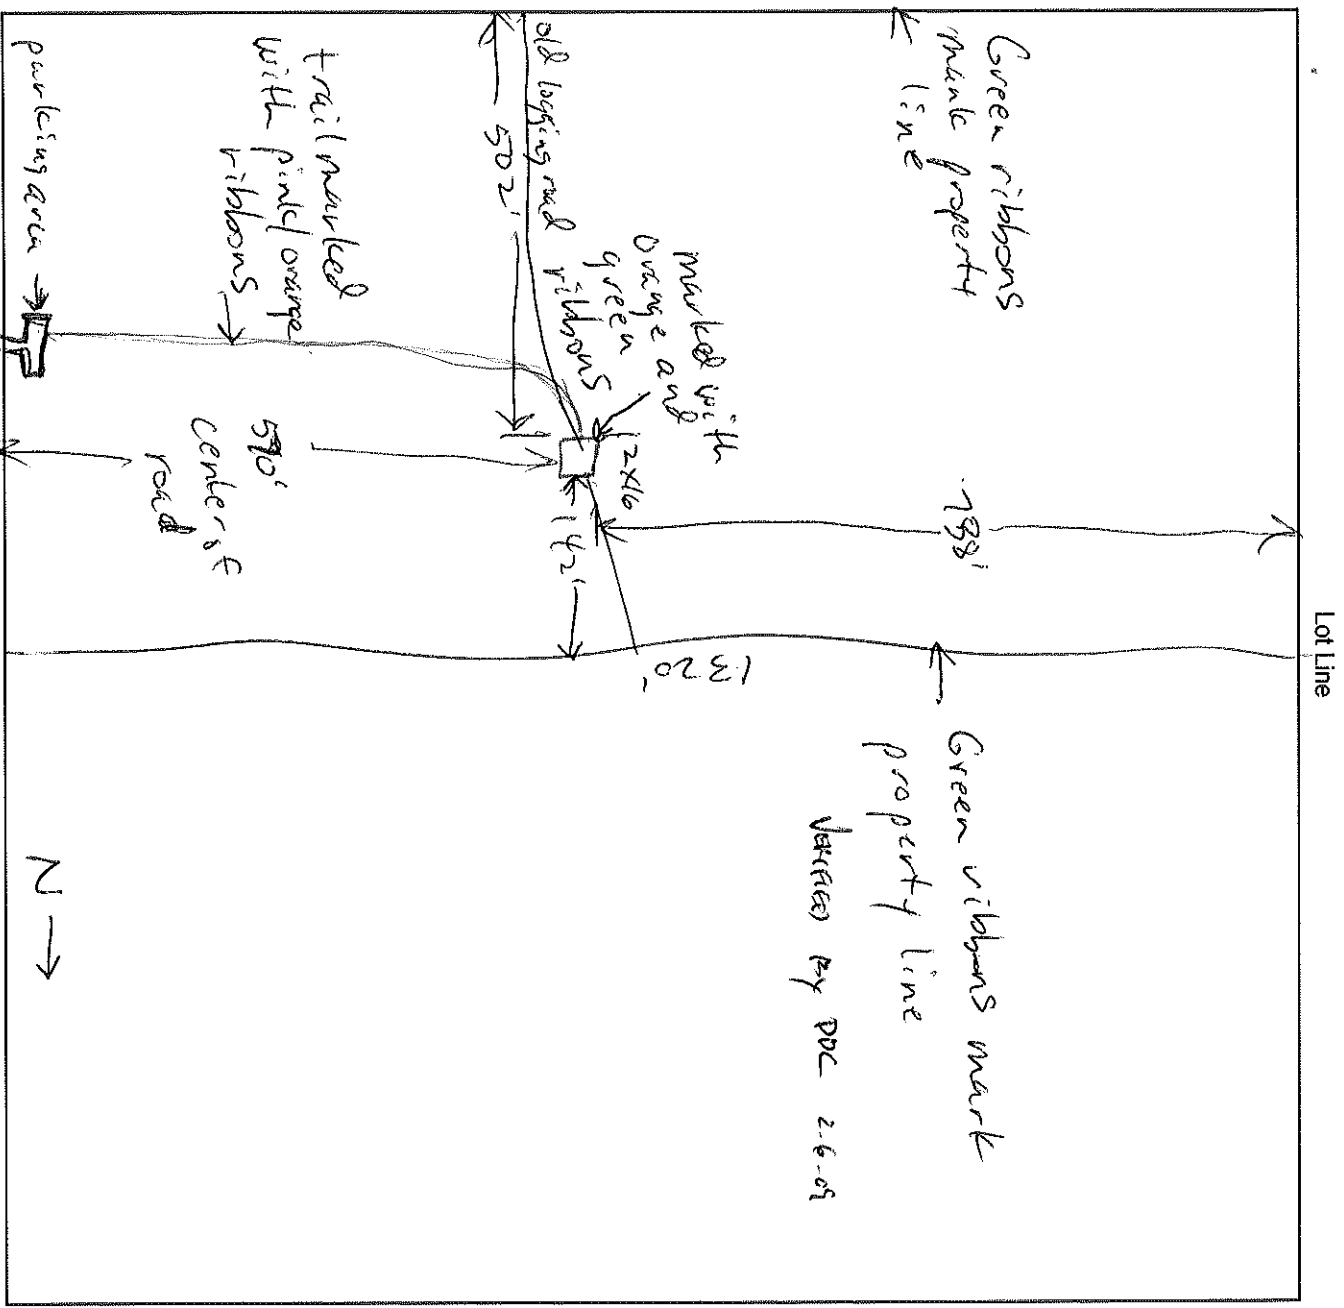 Lot Line
Green ribbons
mark property
line
Green ribbons mark
property line
VERIFIED BY DDC 2-6-09
788'
1320'
marked with
orange and
green
ribbons
12x16
old logging road
502'
142'
trail marked
with pink/orange
ribbons
590'
center of
road
parking area
N